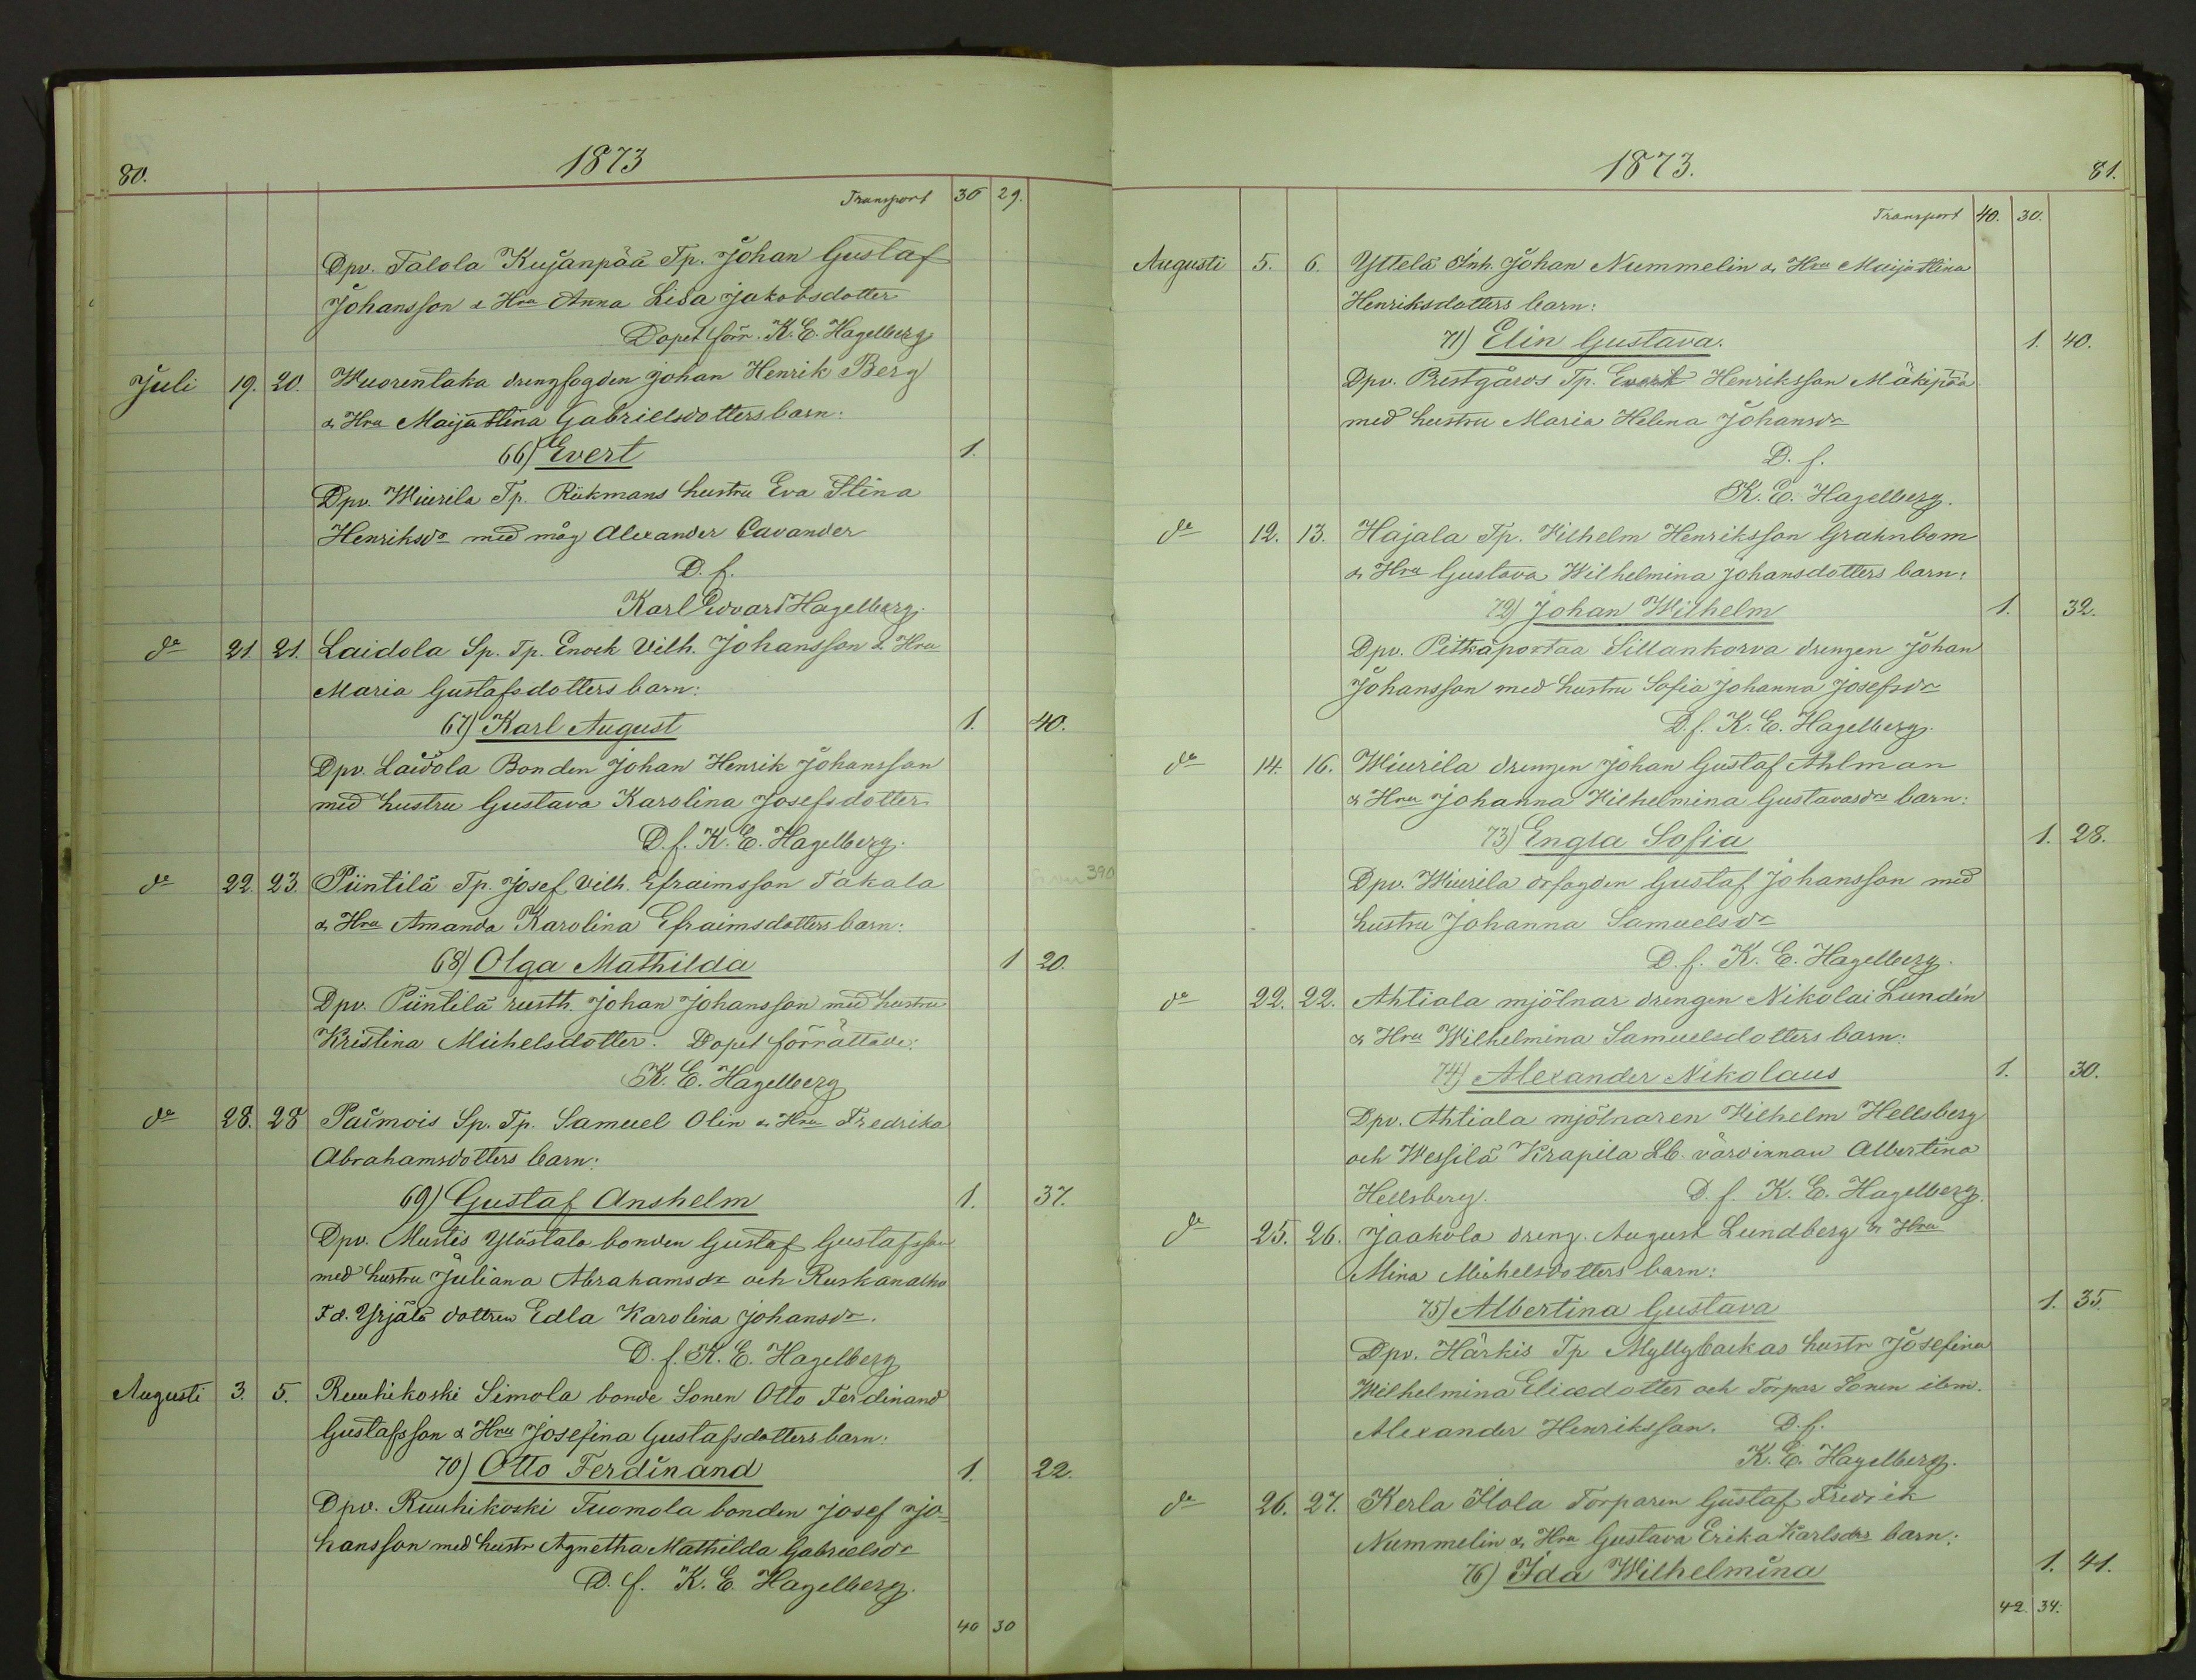 80.
1873
Transport 36 29.
Dpv. Talola Kujanpää Tp. Johan Gustaf
Johansson & Hru Anna Lisa Jakobsdotter
Dopet förr. K. E. Hagelberg
Juli 19. 20. Wuorentaka drengfogden Johan Henrik Berg
& Hru Maija Stina Gabrielsdotters barn:
66) Evert 1.
Dpv. Wiurila Tp. Rükmans hustru Eva Stina
Henriksdr med måg Alexander Cavander
D. f.
Karl Edvard Hagelberg.
do 21 21. Laidola Sp. Tp. Enock Vilh. Johansson & Hru
Maria Gustafsdotters barn:
67) Karl August 1. 40.
Dpv. Laidola Bonden Johan Henrik Johansson
med hustru Gustava Karolina Josefsdotter
D. f. K. E. Hagelberg.
do 22. 23. Piintilä Tp. Josef Vilh. Efraimsson Takala
& Hru Amanda Karolina Efraimsdotters barn:
68) Olga Mathilda 1 20.
Dpv. Piintilä rusth. Johan Johansson med hustru
Kristina Michelsdotter. Dopet förrättade:
K. E. Hagelberg
do 28. 28 Paimois Sp. Tp. Samuel Olin & Hru Fredrika
Abrahamsdotters barn:
69) Gustaf Anshelm 1. 37.
Dpv. Mustis Ylöstalo bonden Gustaf Gustafsson
med hustru Juliana Abrahamsdr och Ruskanalho
Fd. Yrjälä dottren Edla Karolina Johansdr.
D. f. K. E. Hagelberg
Augusti 3. 5. Ruuhikoski Simola bonde Sonen Otto Ferdinand
Gustafsson & Hru Josefina Gustafsdotters barn:
70) Otto Ferdinand 1. 22.
Dpv. Ruuhikoski Tuomola bonden Josef Jo-
hansson med hustr Agnetha Mathilda Gabrielsdr
D. f. K. E. Hagelberg.
40 30
1873.
81.
Transport 40. 30.
Augusti 5. 6. Yttelä Inh. Johan Nummelin & Hru Maija Stina
Henriksdotters barn:
71) Elin Gustava. 1. 40.
Dpv. Prestgårds Tp. Evert Henriksson Mäkipää
med hustru Maria Helena Johansdr
D. f.
K. E. Hagelberg.
do 12. 13. Hajala Tp. Vilhelm Henriksson Grahnbom
& Hru Gustava Wilhelmina Johansdotters barn:
72) Johan Wilhelm 1. 32.
Dpv. Pitkäportaa Sillankorva drengen Johan
Johansson med hustru Sofia Johanna Josefsdr
D. f. K. E. Hagelberg.
do 14. 16. Wiurila drengen Johan Gustaf Ahlman
& Hru Johanna Vilhelmina Gustavasdrs barn:
73) Engla Sofia 1. 28.
Dpv. Wiurila drfogden Gustaf Johansson med
hustru Johanna Samuelsdr
D. f. K. E. Hagelberg.
do 22. 22. Ahtiala mjölnar drengen Nikolai Lundén
& Hru Wilhelmina Samuelsdotters barn:
74) Alexander Nikolaus 1. 30.
Dpv. Ahtiala mjölnaren Vilhelm Hellsberg
och Wessilä Krapila Lb. värdinnan Albertina
Hellsberg. D. f. K. E. Hagelberg.
do 25. 26. Jaakola dreng. August Lundberg & Hru
Mina Michelsdotters barn:
75) Albertina Gustava 1. 35.
Dpv. Härkis Tp Myllybackas hustr Josefina
Wilhelmina Eliædotter och Torpar Sonen ibm.
Alexander Henriksson. D. f.
K. E. Hagelberg.
do 26. 27. Kerla Ilola Torparen Gustaf Fredrik
Nummelin & Hru Gustava Erika Karlsdrs barn:
76) Ida Wilhelmina 1. 41.
42. 34.